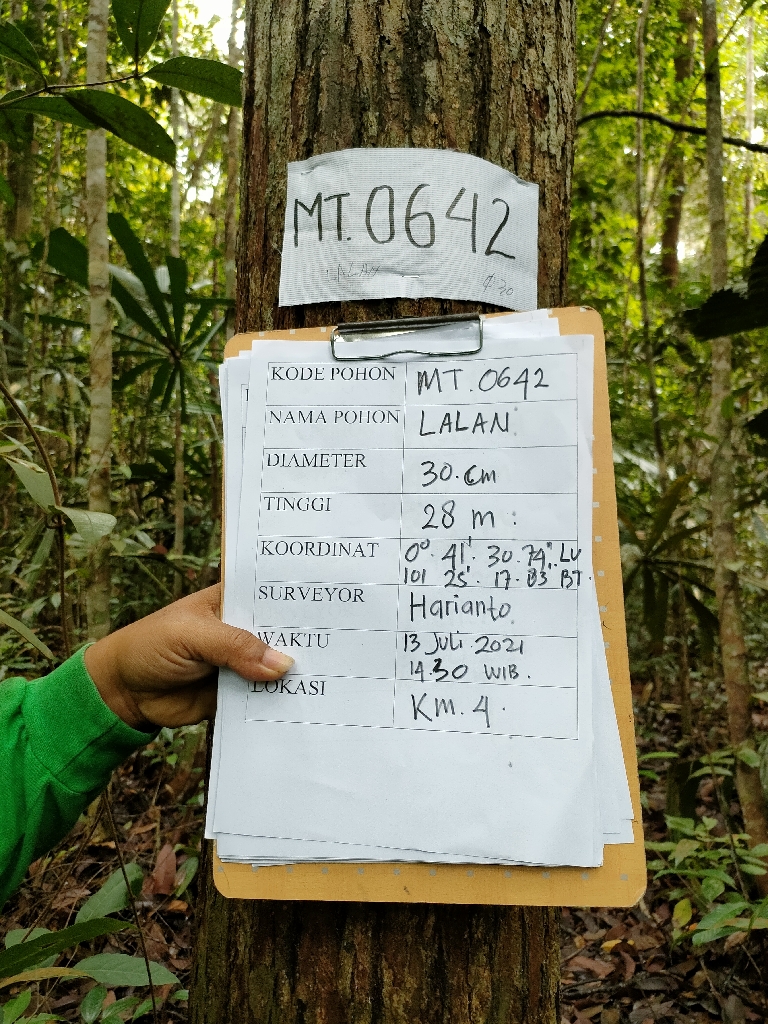 MT. 0642
LALAN
KODE POHON MT. 0642
NAMA POHON LALAN
DIAMETER 30. cm
TINGGI 28 m
KOORDINAT 0° 41' 30.74" LU
101 25' 17.83 BT.
SURVEYOR Harianto
WAKTU 13 Juli 2021
14.30 WIB.
LOKASI Km. 4